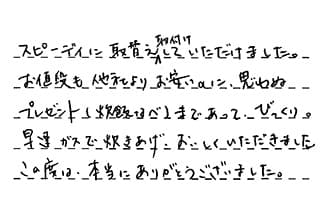 スピーディに取替え取付けしていただけました。
お値段も他社よりお安いのに、思わぬ
プレゼント(炊飯なべ)まであって、びっくり。
早速ガスで炊きあげ、おいしくいただきました
この度は、本当にありがとうございました。